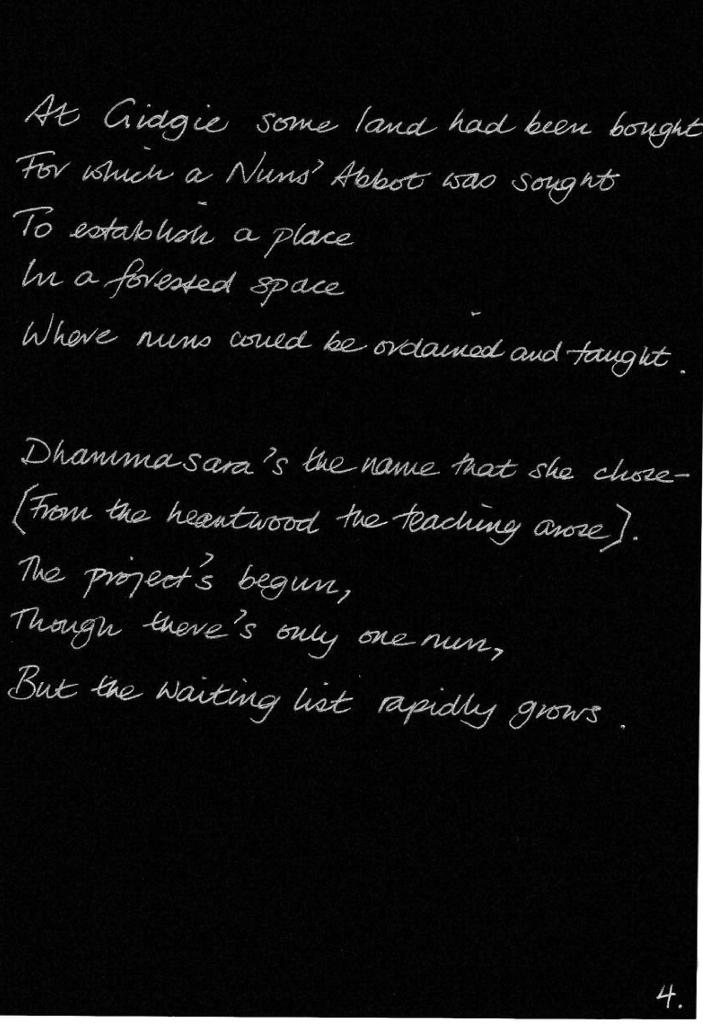 At Gidgie some land had been bought
For which a Nuns' Abbot was sought
To establish a place
In a forested space
Where nuns could be ordained and taught.
Dhammasara's the name that she chose-
(From the heartwood the teaching arose).
The project's begun,
Though there's only one nun,
But the waiting list rapidly grows.
4.